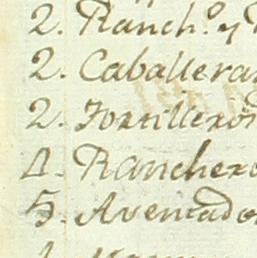 2. Ranch.º y
2. Caballera
2. Tortilleros
1. Ranchero
5. Aventado